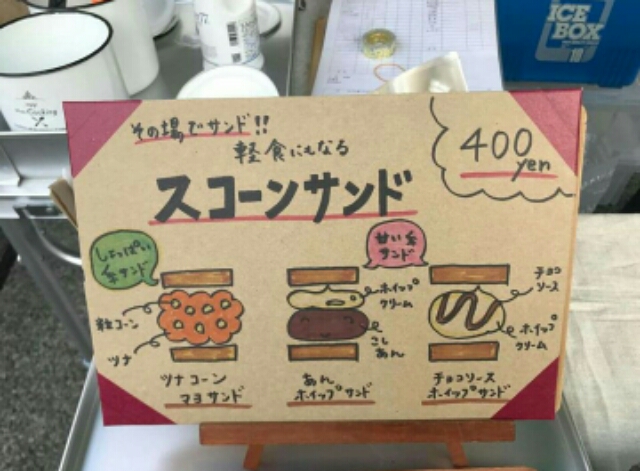 その場でサンド!!
軽食にもなる
スコーンサンド
400
yen
しょっぱい
系サンド
甘い系
サンド
粒コーン
ツナ
ホイップ
クリーム
こし
あん
チョコ
ソース
ホイップ
クリーム
ツナコーン
マヨサンド
あん
ホイップサンド
チョコソース
ホイップサンド
ICE
BOX